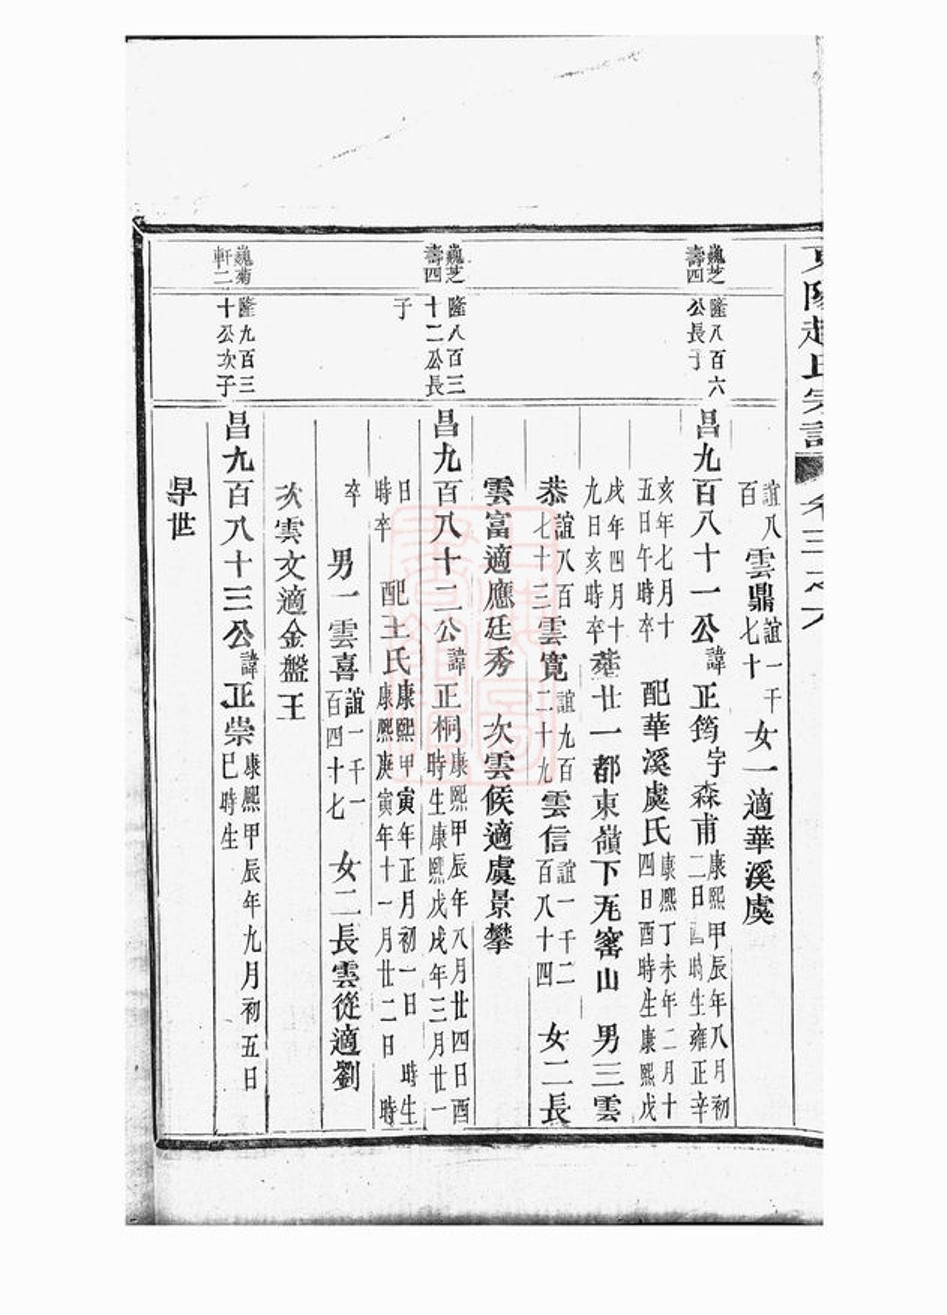 東陽趙氏宗譜 卷三之六
誼八百雲鼎誼一千七十女一適華溪虞
巍芝壽四 隆八百六公長子 昌九百八十一公諱正筠字森甫康熙甲辰年八月初二日酉時生雍正辛
亥年七月十五日午時卒 配華溪處氏康熙丁未年二月十四日酉時生康熙戊
戌年四月十九日亥時卒葬廿一都東嶺下旡窰山 男三雲
恭誼八百七十三雲寬誼九百二十九雲信誼一千二百八十四 女二長
雲富適應廷秀 次雲候適虞景攀
巍芝壽四 隆八百三十二公長子 昌九百八十二公諱正桐康熙甲辰年八月廿四日酉時生康熙戊戌年三月廿一
日時卒 配王氏康熙甲寅年正月初一日 時生康熙庚寅年十一月廿二日 時
卒 男一雲喜誼一千一百四十七 女二長雲從適劉
次雲文適金盤王
巍菊軒二 隆九百三十公次子 昌九百八十三公諱正崇康熙甲辰年九月初五日巳時生
早世